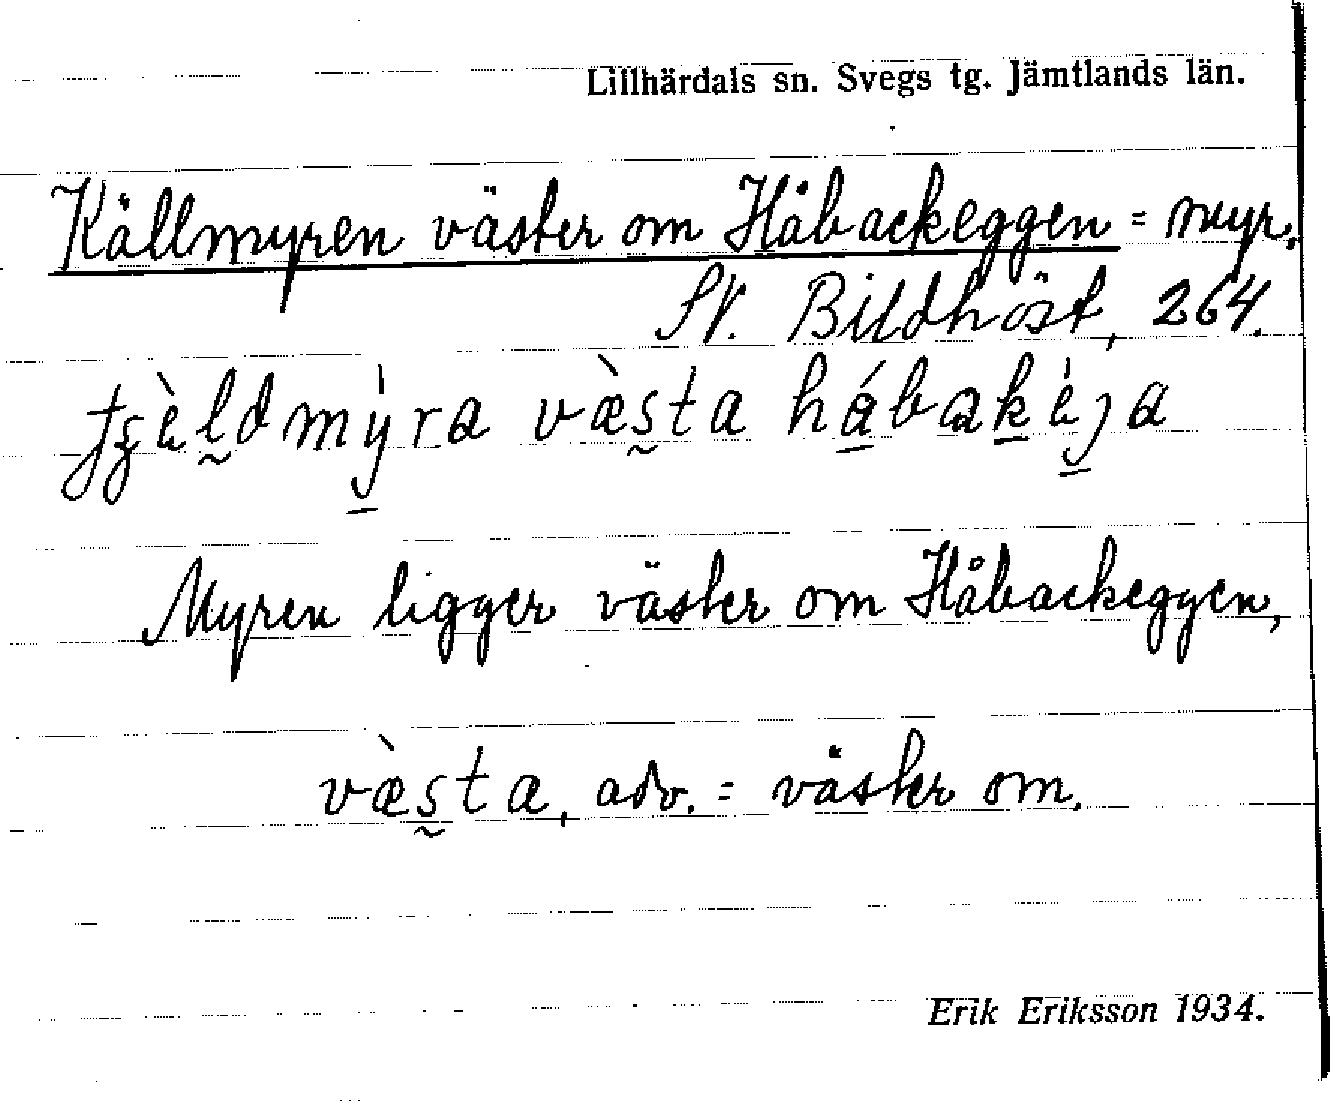 Lillhärdals sn. Svegs tg. Jämtlands län.
Källmyren väster om Håbackeggen = myr.
St. Bildhöst, 264.
væ̀s̰ta
Myren ligger väster om Håbackeggen,
væ̀s̰ta, adv. = väster om.
Erik Eriksson 1934.